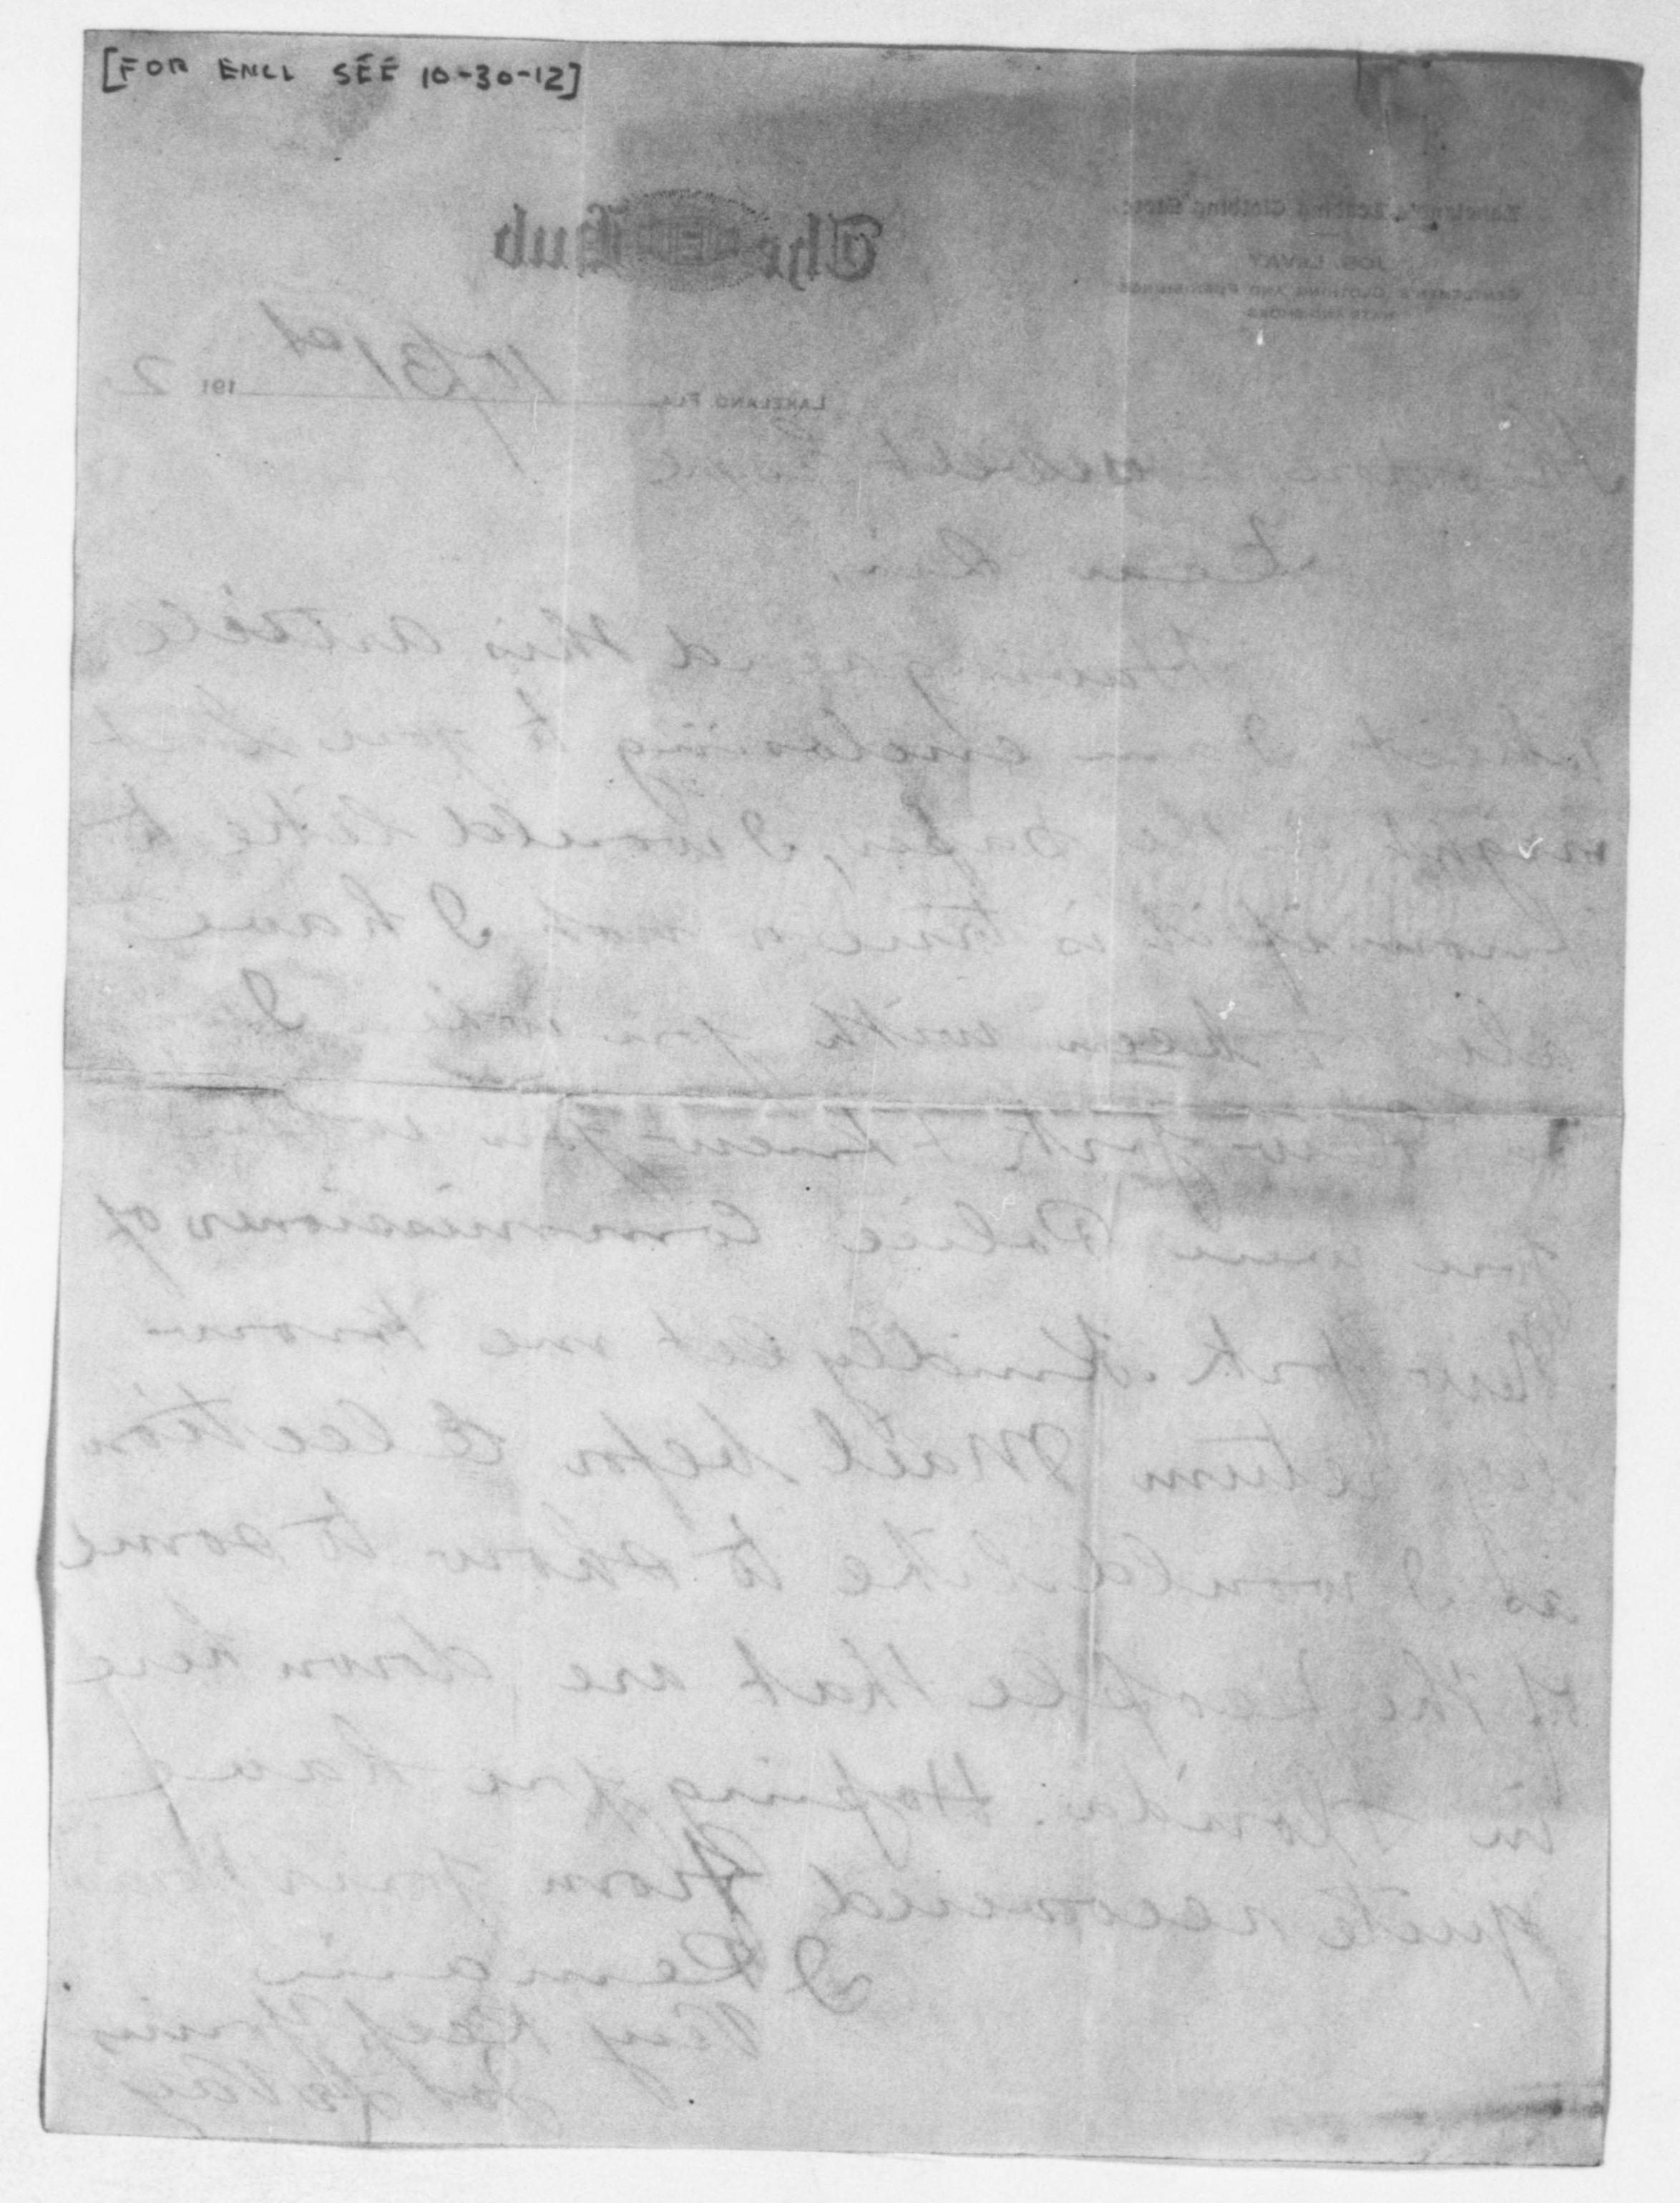 [FOR ENCL SEE 10-30-12]
Lakeland's Leading Clothing Store
The Hub
JOS. LEVAY
GENTLEMEN'S CLOTHING AND FURNISHINGS
HATS AND SHOES
LAKELAND, FLA. 10/31st 1912
Dear Sir,
Having read this article
which I am enclosing to you last
night in the paper, I would like to
know if it is true or not I have
been with you when I
in New York & knew you when
you were Police Commissioner of
New York. Kindly let me know
by return Mail befor Election
as I would like to show to some
of the People that are down here
in Florida. Hoping you have
quite recovered from your
I Remain
Very Resp. Yours
Jos. LeVay